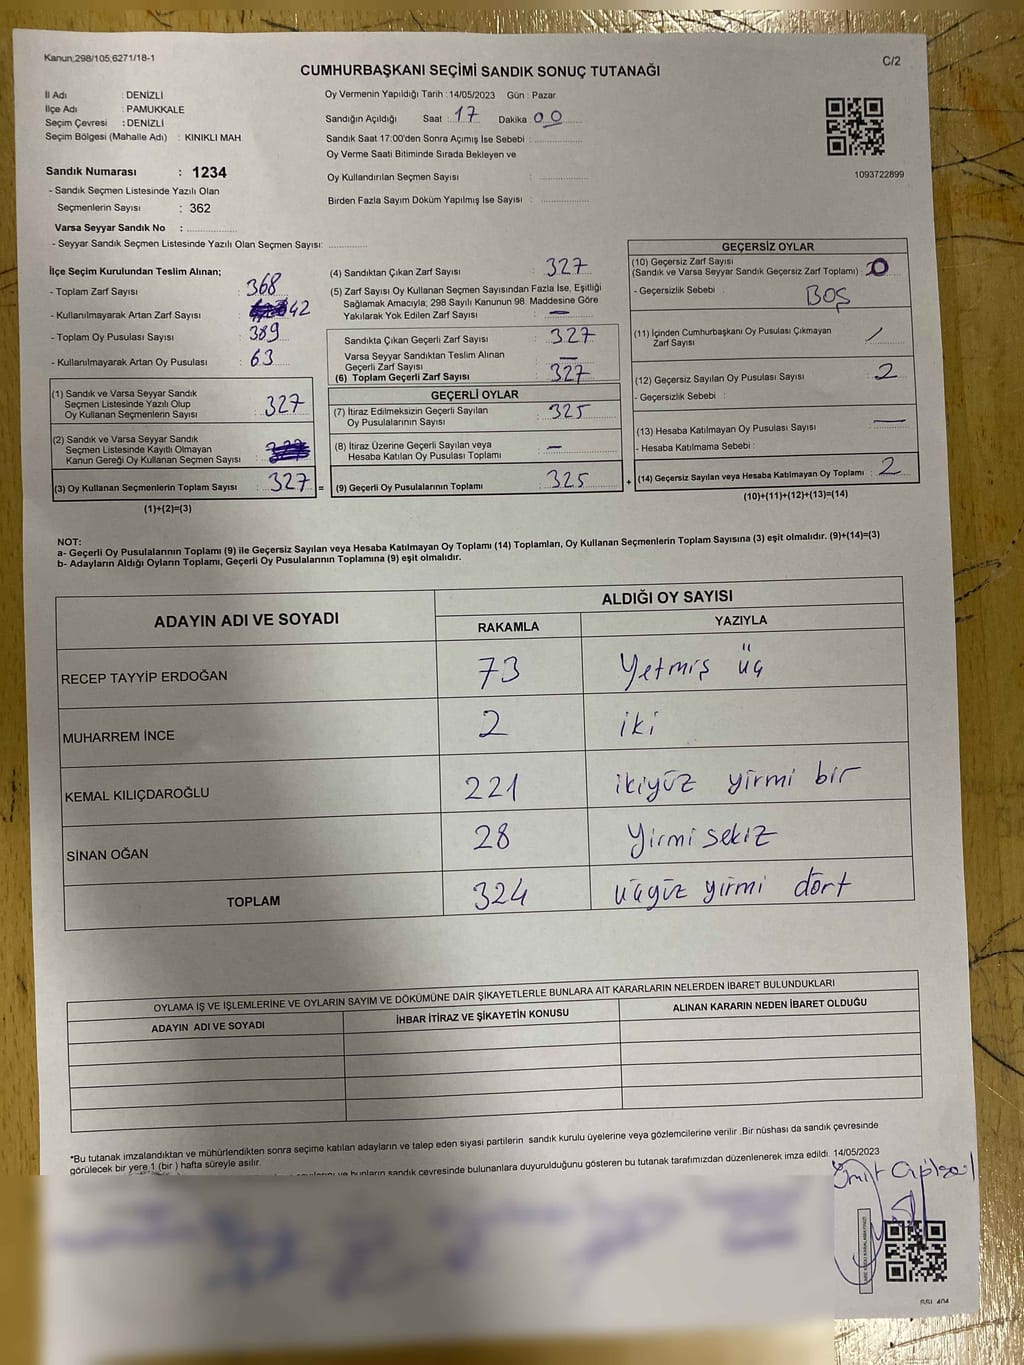 Kanun:298/105,6271/18-1
C/2
CUMHURBAŞKANI SEÇİMİ SANDIK SONUÇ TUTANAĞI
İl Adı : DENİZLİ
İlçe Adı : PAMUKKALE
Seçim Çevresi : DENİZLİ
Seçim Bölgesi (Mahalle Adı) : KINIKLI MAH.
Oy Vermenin Yapıldığı Tarih : 14/05/2023 Gün : Pazar
Sandığın Açıldığı Saat : 17 Dakika : 00
Sandık Saat 17:00'den Sonra Açımış İse Sebebi :
Oy Verme Saati Bitiminde Sırada Bekleyen ve
Oy Kullandırılan Seçmen Sayısı :
Birden Fazla Sayım Döküm Yapılmış İse Sayısı :
1093722899
Sandık Numarası : 1234
- Sandık Seçmen Listesinde Yazılı Olan
Seçmenlerin Sayısı : 362
Varsa Seyyar Sandık No :
- Seyyar Sandık Seçmen Listesinde Yazılı Olan Seçmen Sayısı:
İlçe Seçim Kurulundan Teslim Alınan;
- Toplam Zarf Sayısı 368
- Kullanılmayarak Artan Zarf Sayısı 42
- Toplam Oy Pusulası Sayısı 389
- Kullanılmayarak Artan Oy Pusulası 63
(1) Sandık ve Varsa Seyyar Sandık
Seçmen Listesinde Yazılı Olup
Oy Kullanan Seçmenlerin Sayısı : 327
(2) Sandık ve Varsa Seyyar Sandık
Seçmen Listesinde Kayıtlı Olmayan
Kanun Gereği Oy Kullanan Seçmen Sayısı :
(3) Oy Kullanan Seçmenlerin Toplam Sayısı : 327 =
(1)+(2)=(3)
(4) Sandıktan Çıkan Zarf Sayısı : 327
(5) Zarf Sayısı Oy Kullanan Seçmen Sayısından Fazla İse, Eşitliği
Sağlamak Amacıyla; 298 Sayılı Kanunun 98. Maddesine Göre
Yakılarak Yok Edilen Zarf Sayısı : —
Sandıkta Çıkan Geçerli Zarf Sayısı : 327
Varsa Seyyar Sandıktan Teslim Alınan
Geçerli Zarf Sayısı : —
(6) Toplam Geçerli Zarf Sayısı : 327
GEÇERLİ OYLAR
(7) İtiraz Edilmeksizin Geçerli Sayılan
Oy Pusulalarının Sayısı : 325
(8) İtiraz Üzerine Geçerli Sayılan veya
Hesaba Katılan Oy Pusulası Toplamı : —
(9) Geçerli Oy Pusulalarının Toplamı : 325 +
GEÇERSİZ OYLAR
(10) Geçersiz Zarf Sayısı
(Sandık ve Varsa Seyyar Sandık Geçersiz Zarf Toplamı) : 0
- Geçersizlik Sebebi : BOŞ
(11) İçinden Cumhurbaşkanı Oy Pusulası Çıkmayan
Zarf Sayısı : /
(12) Geçersiz Sayılan Oy Pusulası Sayısı : 2
- Geçersizlik Sebebi :
(13) Hesaba Katılmayan Oy Pusulası Sayısı : —
- Hesaba Katılmama Sebebi :
(14) Geçersiz Sayılan veya Hesaba Katılmayan Oy Toplamı : 2
(10)+(11)+(12)+(13)=(14)
NOT:
a- Geçerli Oy Pusulalarının Toplamı (9) ile Geçersiz Sayılan veya Hesaba Katılmayan Oy Toplamı (14) Toplamları, Oy Kullanan Seçmenlerin Toplam Sayısına (3) eşit olmalıdır. (9)+(14)=(3)
b- Adayların Aldığı Oyların Toplamı, Geçerli Oy Pusulalarının Toplamına (9) eşit olmalıdır.
ADAYIN ADI VE SOYADI
ALDIĞI OY SAYISI
RAKAMLA YAZIYLA
RECEP TAYYİP ERDOĞAN 73 Yetmiş üç
MUHARREM İNCE 2 iki
KEMAL KILIÇDAROĞLU 221 ikiyüz yirmi bir
SİNAN OĞAN 28 Yirmi sekiz
TOPLAM 324 üçyüz yirmi dört
OYLAMA İŞ VE İŞLEMLERİNE VE OYLARIN SAYIM VE DÖKÜMÜNE DAİR ŞİKAYETLERLE BUNLARA AİT KARARLARIN NELERDEN İBARET BULUNDUKLARI
ADAYIN ADI VE SOYADI İHBAR İTİRAZ VE ŞİKAYETİN KONUSU ALINAN KARARIN NEDEN İBARET OLDUĞU
*Bu tutanak imzalandıktan ve mühürlendikten sonra seçime katılan adayların ve talep eden siyasi partilerin sandık kurulu üyelerine veya gözlemcilerine verilir .Bir nüshası da sandık çevresinde
görülecek bir yere 1 (bir ) hafta süreyle asılır.
ve bunların sandık çevresinde bulunanlara duyurulduğunu gösteren bu tutanak tarafımızdan düzenlenerek imza edildi. 14/05/2023